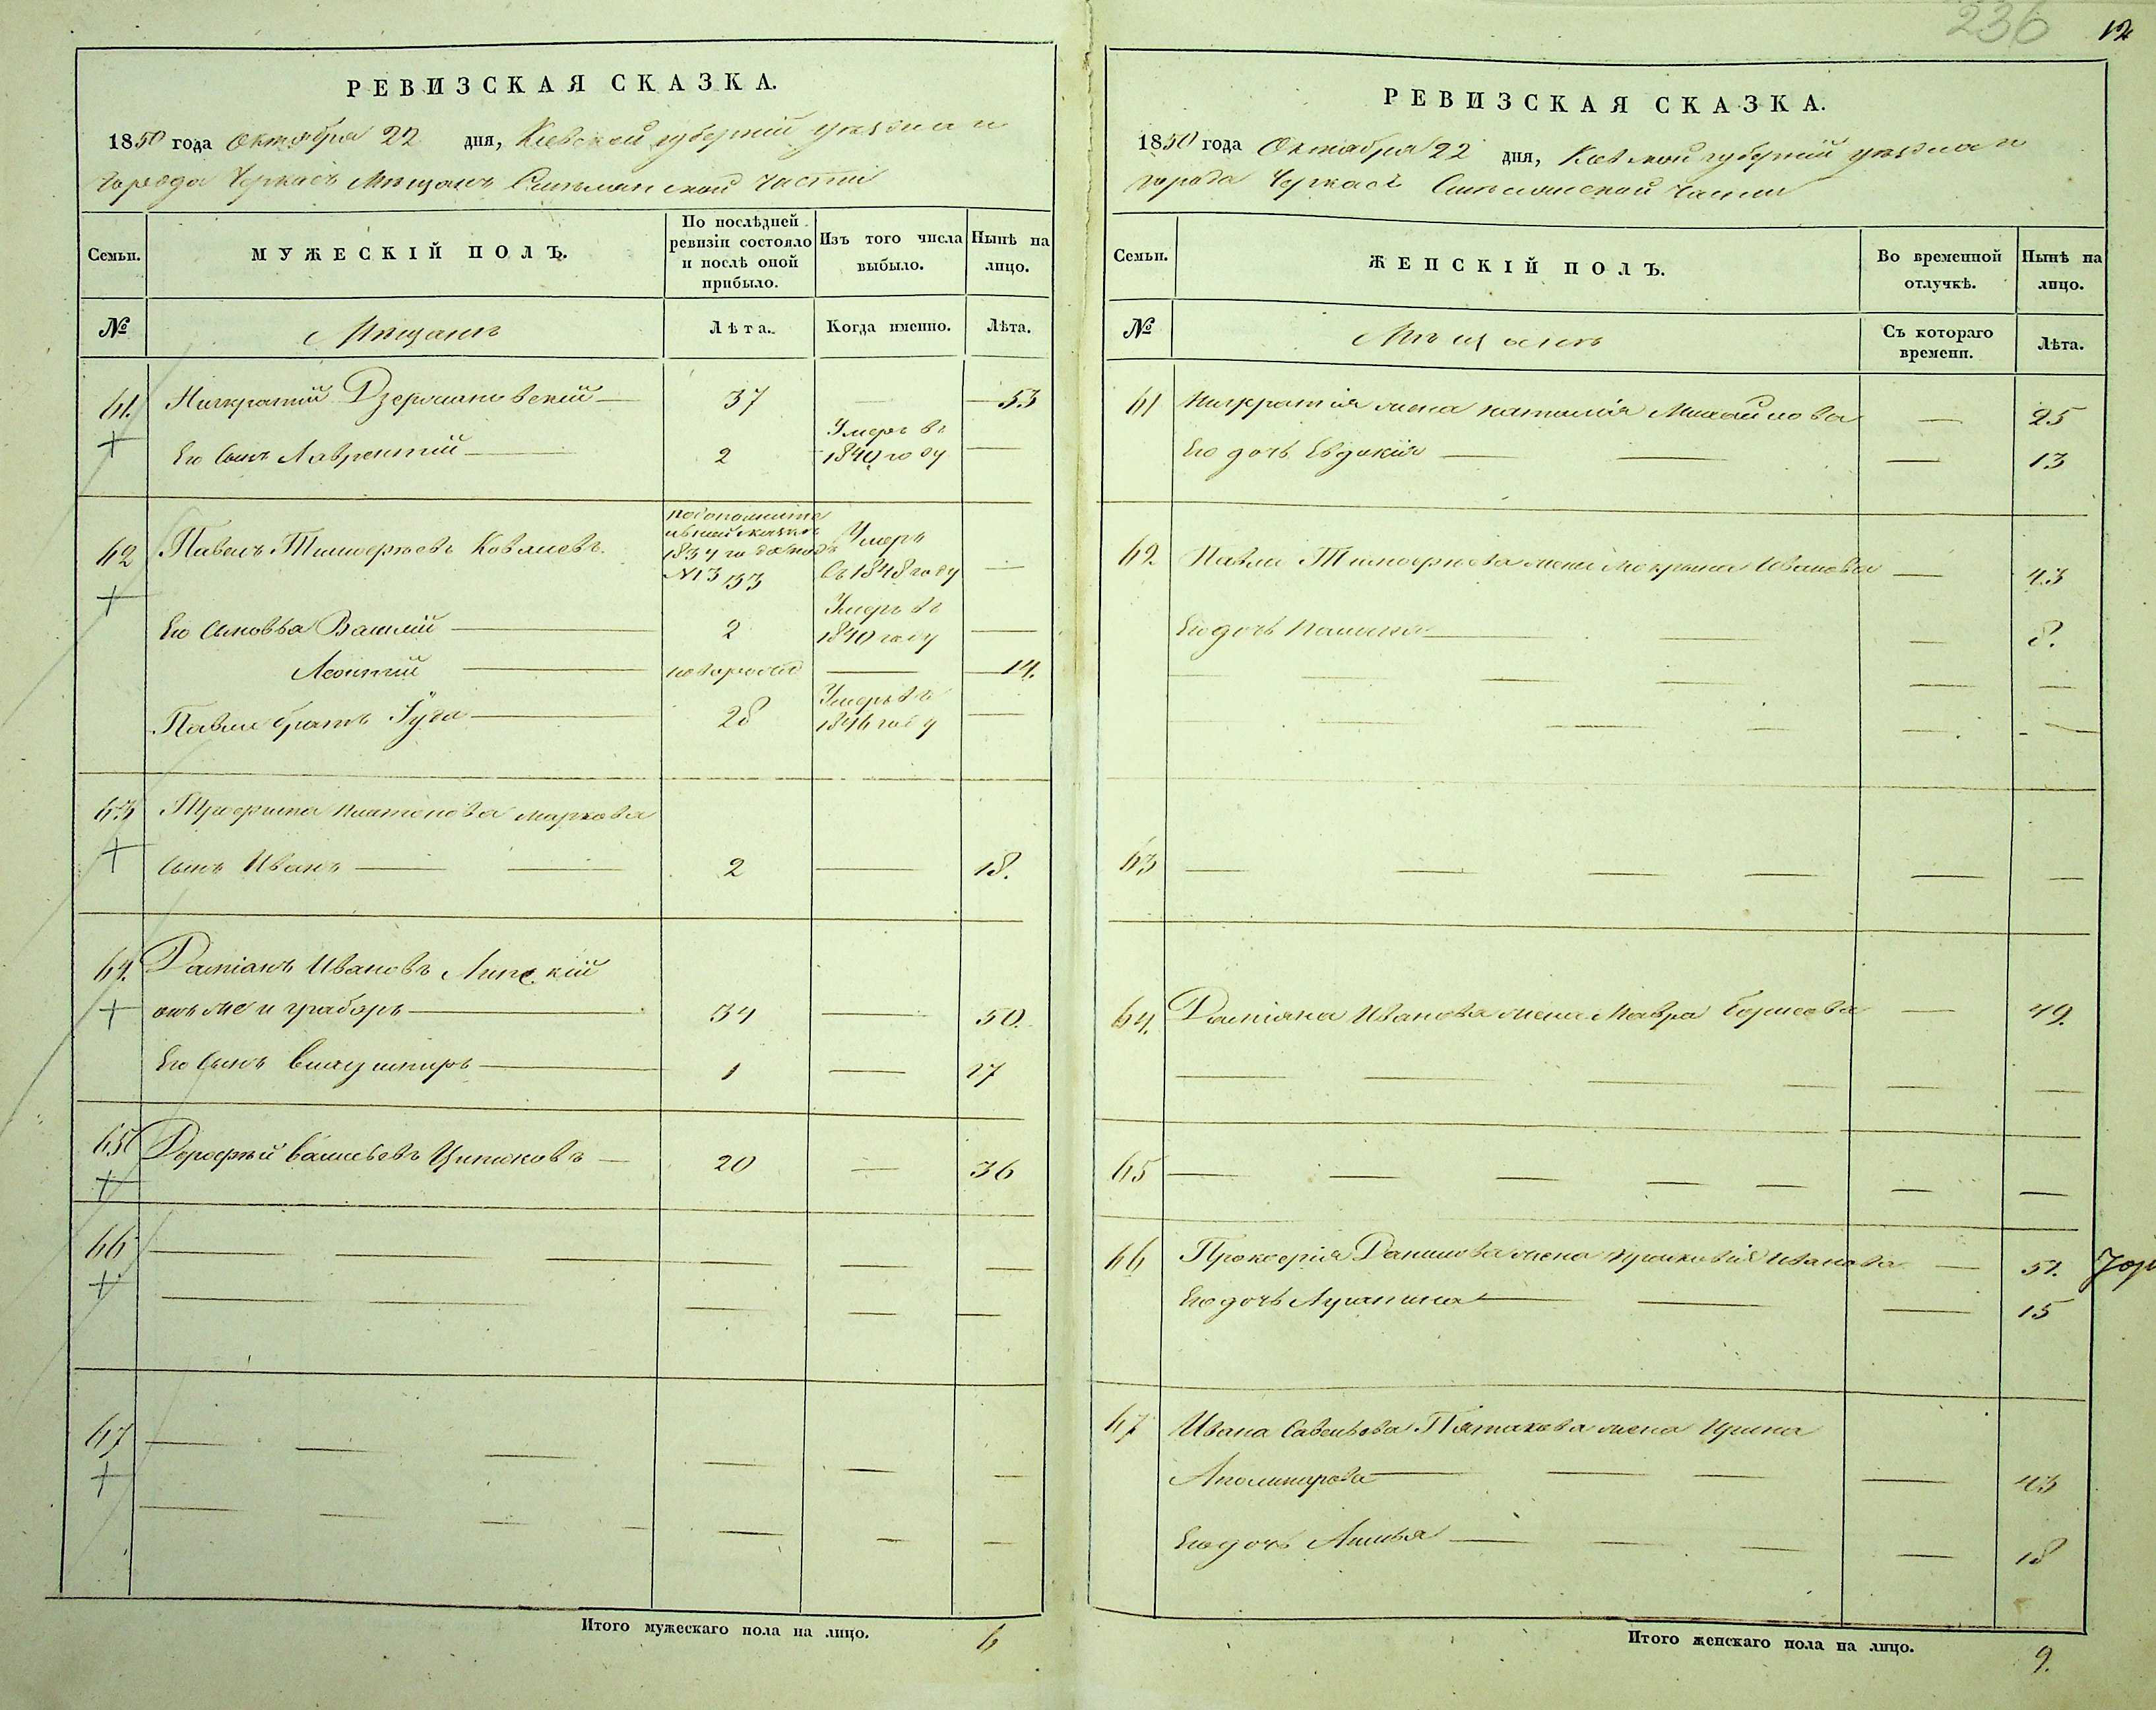 236
12
РЕВИЗСКАЯ СКАЗКА.
1850 года Октября 22 дня, Киевской губерніи уѣзда и
города Черкасъ Мѣщанъ Смѣлянской части
Семьи.
МУЖЕСКІЙ ПОЛЪ.
По послѣдней ревизіи состояло и послѣ оной прибыло.
Изъ того числа выбыло.
Нынѣ на лицо.
№
Мѣщанъ
Лѣта.
Когда именно.
Лѣта.
61. Дзержановскій — 37 — 53
Его сынъ Лаврентій — 2 Умеръ въ 1840 году —
62 Павелъ Тимофѣевъ Ковалевъ. 1834 года подъ №13 33 Умеръ въ 1848 году —
Его сыновья Василій — 2 Умеръ въ 1840 году —
Леонтій — — 14.
Павла братъ Іуда — 28 Умеръ въ 1846 году —
63 Трофима Платонова Маркова
сынъ Иванъ — — 2 — 18.
64. Даміанъ Ивановъ Липскій
онъ же и Граборъ — 34 — 50.
Его сынъ — 1 — 17
65 Дорофей Васильевъ — 20 — 36
66
67
Итого мужескаго пола на лицо. 6
РЕВИЗСКАЯ СКАЗКА.
1850 года Октября 22 дня, Киевской губерніи уѣзда и
города Черкасъ Смѣлянской части
Семьи.
ЖЕНСКІЙ ПОЛЪ.
Во временной отлучкѣ.
Нынѣ на лицо.
№
Мѣщанъ
Съ котораго времени.
Лѣта.
61 жена Наталія Михайлова — 25
Его дочь Евдокія — — — 13
62. Павла Тимофѣева жена Мокрина Иванова — 43
Его дочь — — — 8.
63
64. Даміана Иванова жена Мавра Борисова — 49.
65
66 Прокофія Данилова жена Прасковія Иванова — 51.
Его дочь — — — 15
67 Ивана Савельева Пятакова жена Ирина
Аполинарова — — — — 43
Его дочь — — — — 18
Итого женскаго пола на лицо. 9.